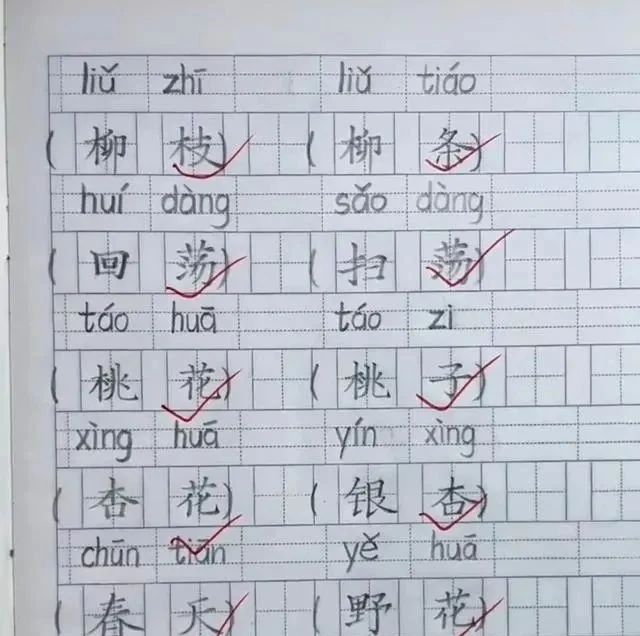 liǔ zhī liǔ tiáo
(柳枝) (柳条)
huí dàng sǎo dàng
(回荡) (扫荡)
táo huā táo zi
(桃花) (桃子)
xìng huā yín xìng
(杏花) (银杏)
chūn tiān yě huā
(春天) (野花)